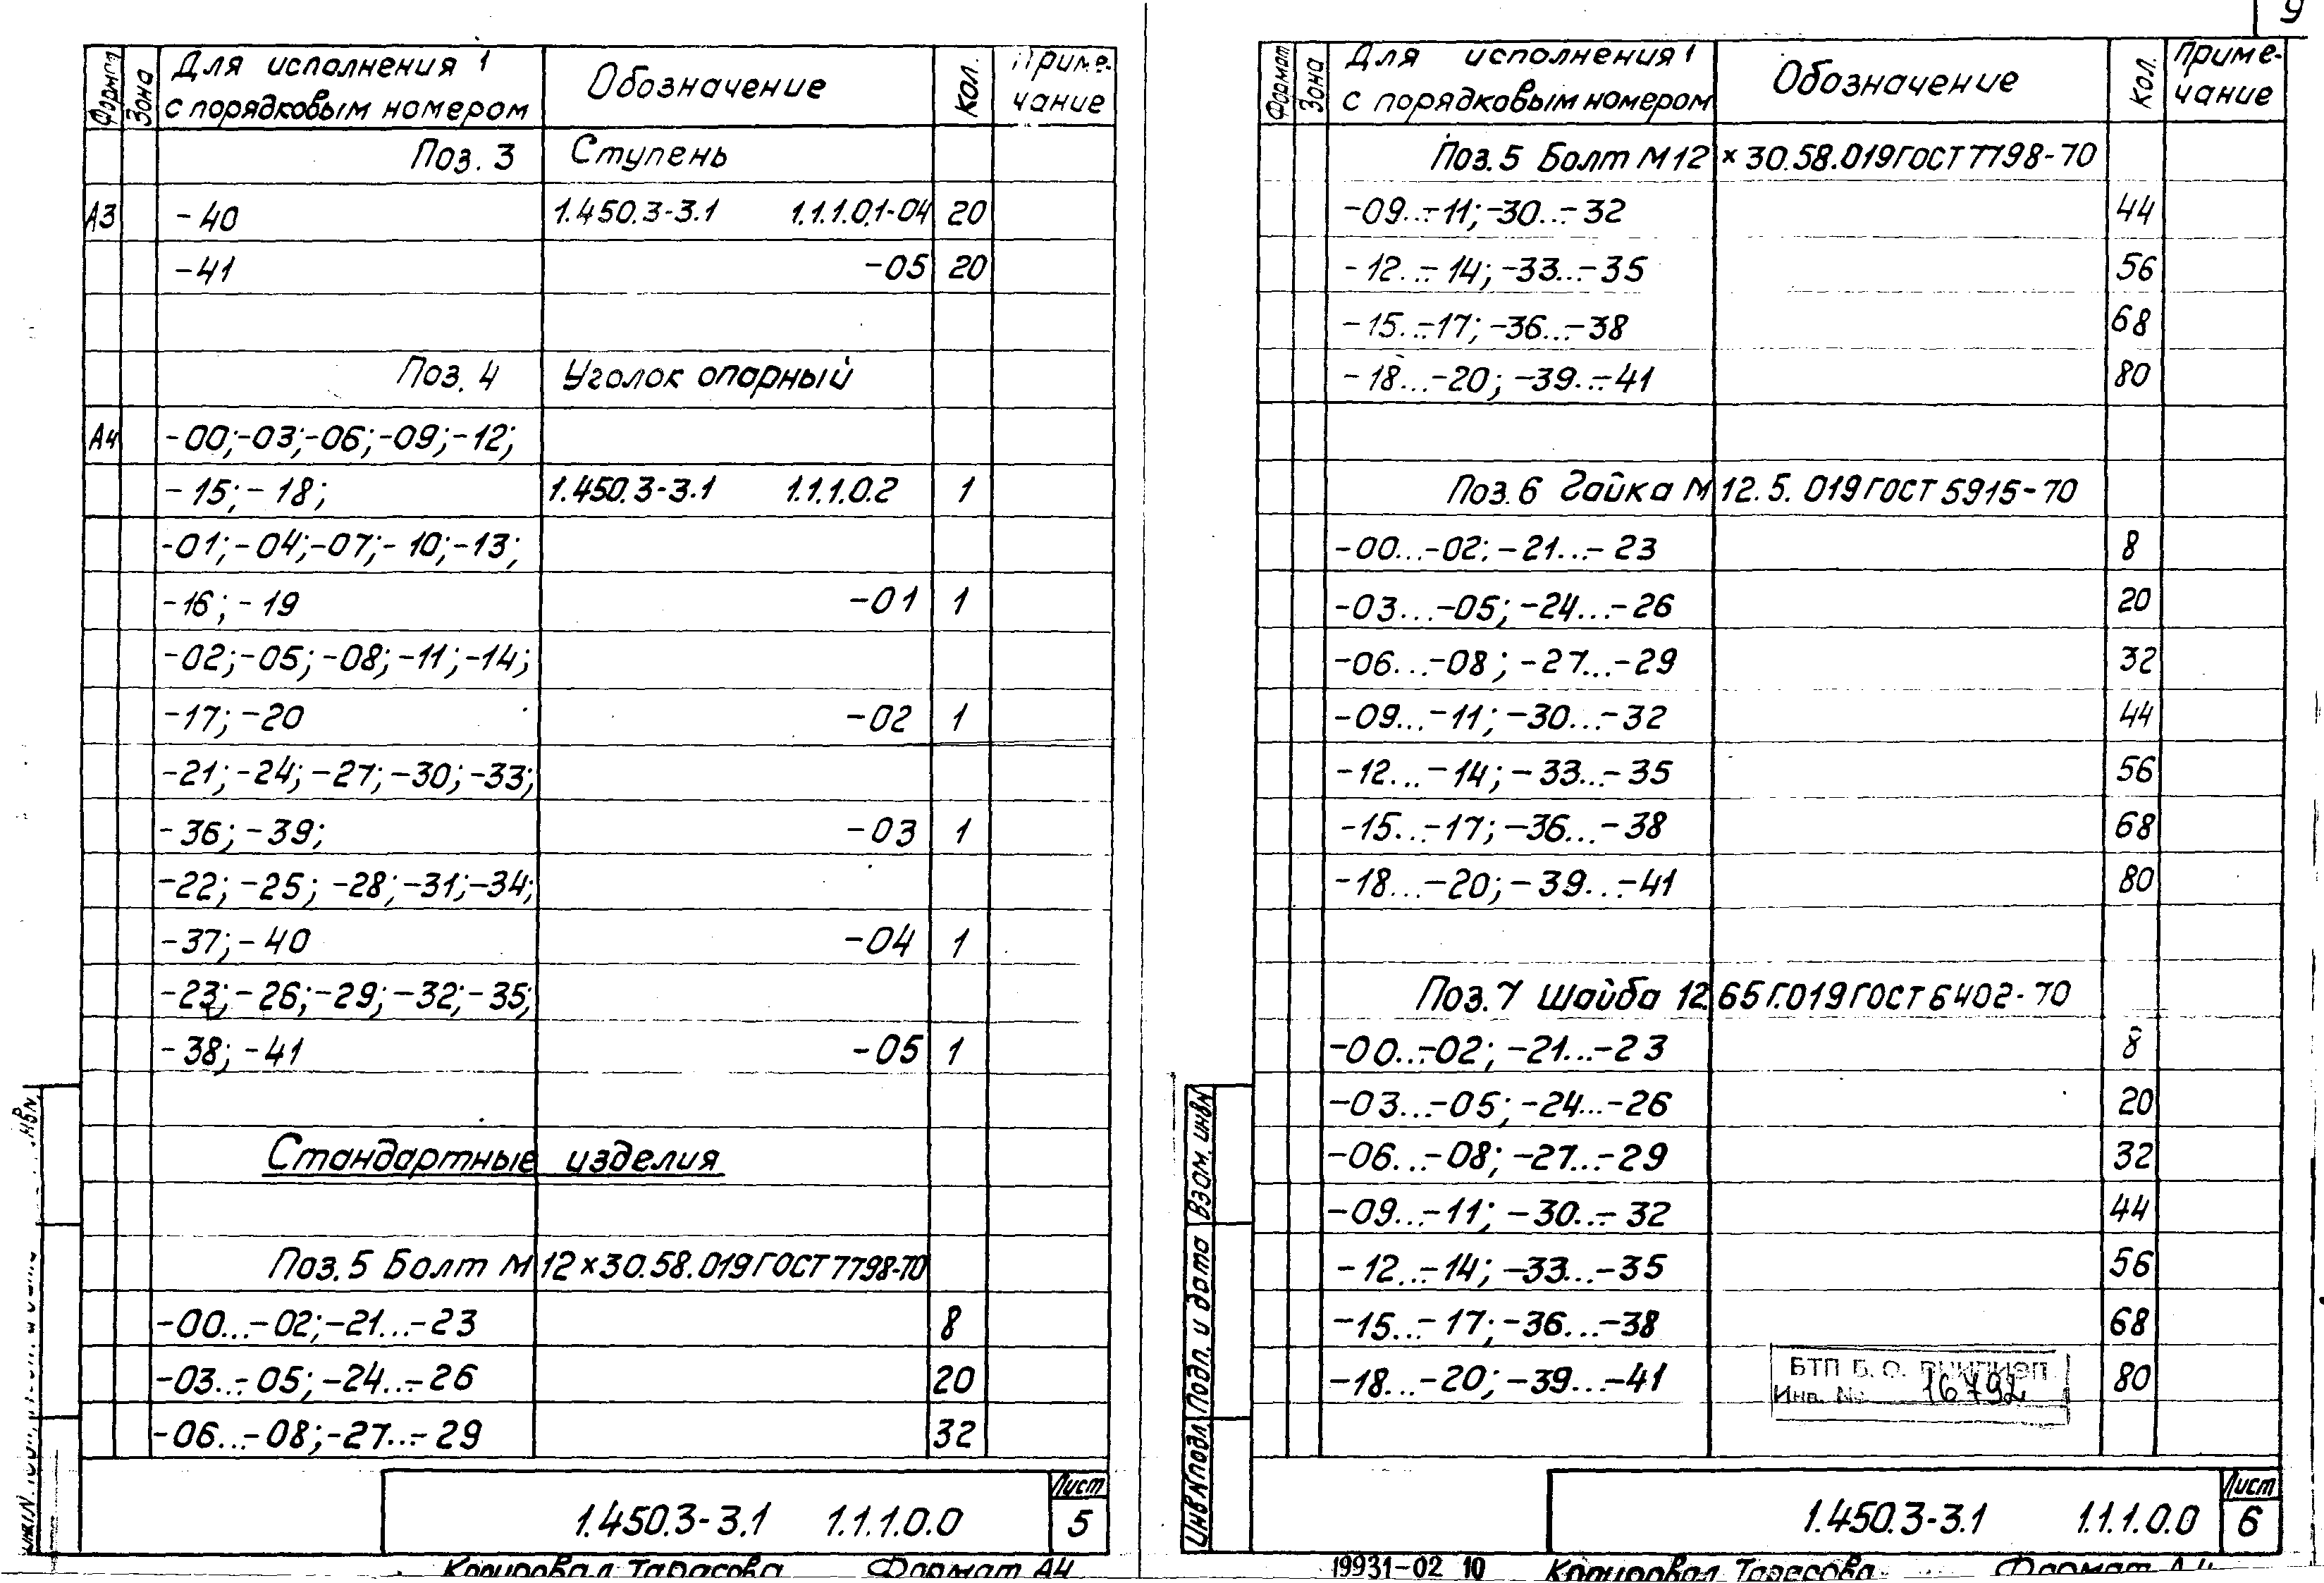 9
Формат Зона Для исполнения 1 с порядковым номером Обозначение Кол. Приме-чание
Поз. 3 Ступень
А3 -40 1.450.3-3.1 1.1.1.0.1-04 20
-41 -05 20
Поз. 4 Уголок опорный
А4 -00;-03;-06;-09;-12;
-15;-18; 1.450.3-3.1 1.1.1.0.2 1
-01;-04;-07;-10;-13;
-16;-19 -01 1
-02;-05;-08;-11;-14;
-17;-20 -02 1
-21;-24;-27;-30;-33;
-36;-39; -03 1
-22;-25;-28;-31;-34;
-37;-40 -04 1
-23;-26;-29;-32;-35;
-38;-41 -05 1
Стандартные изделия
Поз. 5 Болт М12×30.58.019 ГОСТ 7798-70
-00...-02;-21...-23 8
-03...-05;-24...-26 20
-06...-08;-27...-29 32
1.450.3-3.1 1.1.1.0.0 Лист 5
Копировал Тарасова Формат А4
Формат Зона Для исполнения 1 с порядковым номером Обозначение Кол. Приме-чание
Поз. 5 Болт М12×30.58.019 ГОСТ 7798-70
-09...-11;-30...-32 44
-12...-14;-33...-35 56
-15...-17;-36...-38 68
-18...-20;-39...-41 80
Поз. 6 Гайка М12.5.019 ГОСТ 5915-70
-00...-02;-21...-23 8
-03...-05;-24...-26 20
-06...-08;-27...-29 32
-09...-11;-30...-32 44
-12...-14;-33...-35 56
-15...-17;-36...-38 68
-18...-20;-39...-41 80
Поз. 7 Шайба 12 65Г.019 ГОСТ 6402-70
-00...-02;-21...-23 8
-03...-05;-24...-26 20
-06...-08;-27...-29 32
-09...-11;-30...-32 44
-12...-14;-33...-35 56
-15...-17;-36...-38 68
-18...-20;-39...-41 80
БТП Б.О.
Инв. № 16792
Инв N подл. Подп. и дата Взам. инв N
1.450.3-3.1 1.1.1.0.0 Лист 6
19931-02 10 Копировал Тарасова Формат А4